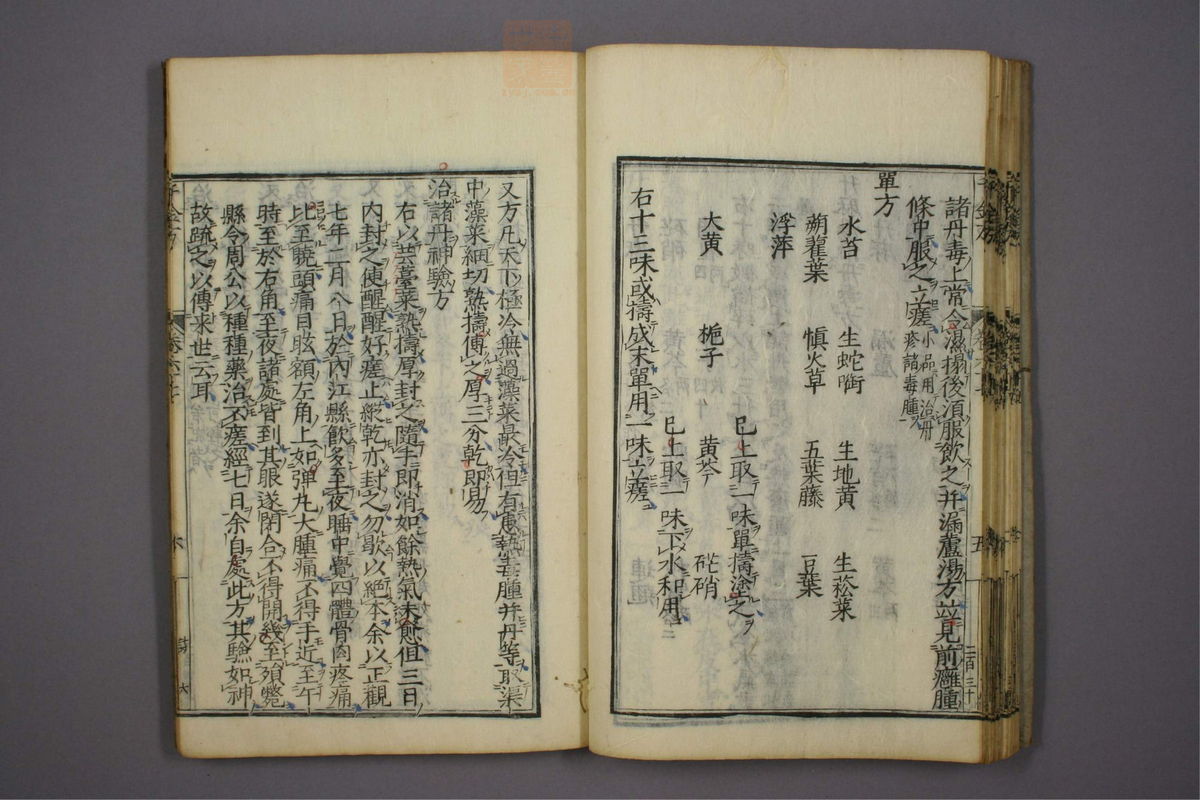 諸丹毒上常令濕搨後須服飲之并漏蘆湯方並見前癰腫
條中服之立瘥小品用治丹疹諸毒腫
單方
水苔 生蛇銜 生地黃 生菘菜
蒴藋葉 愼火草 五葉藤 豆葉
浮萍
已上取一味單擣塗之
大黄 梔子 黃芩 硭硝
已上取一味下水和用
右十三味或擣成末單用一味立瘥
又方凡天下極冷無過藻菜最冷但有患熱毒腫并丹等取渠
中藻菜細切熟擣傅之厚三分乾即易
治諸丹神驗方
右以芸薹菜熟擣厚封之隨手即消如餘熱氣未愈但三日
内封之使醒醒好瘥止縱乾亦封之勿歇以絕本余以正觀
七年三月八日於内江縣飲多至夜睡中覺四體骨肉疼痛
比至曉頭痛目眩額左角上如弹丸大腫痛不得手近至午
時至於右角至夜諸處皆到其眼遂閉合不得開幾至殞斃
縣令周公以種種藥治不瘥經七日余自處此方其驗如神
故疏之以傳来世云耳